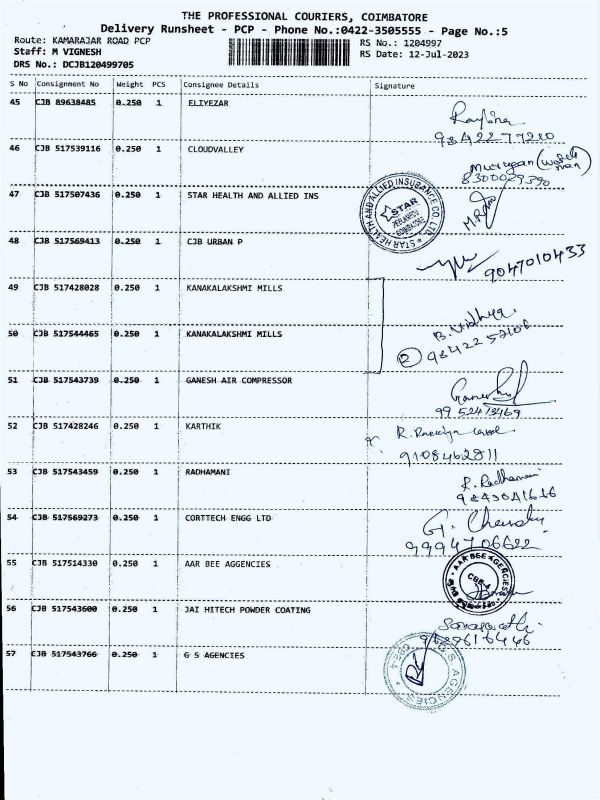 THE PROFESSIONAL COURIERS, COIMBATORE
Delivery Runsheet - PCP - Phone No.:0422-3505555 - Page No.:5
Route: KAMARAJAR ROAD PCP
RS No.: 1204997
Staff: M VIGNESH
RS Date: 12-Jul-2023
DRS No.: DCJB120499705
S No Consignment No Weight PCS Consignee Details Signature
45 CJB 89638485 0.250 1 ELIYEZAR
9842277210
46 CJB 517539116 0.250 1 CLOUDVALLEY Murugan (watch man)
8300029390
47 CJB 517507436 0.250 1 STAR HEALTH AND ALLIED INS
STAR HEALTH AND ALLIED INSURANCE CO. LTD.
STAR
COIMBATORE
48 CJB 517569413 0.250 1 CJB URBAN P
9047010433
49 CJB 517428028 0.250 1 KANAKALAKSHMI MILLS
B. Vidhya
50 CJB 517544465 0.250 1 KANAKALAKSHMI MILLS
2
51 CJB 517543739 0.250 1 GANESH AIR COMPRESSOR
9952473469
52 CJB 517428246 0.250 1 KARTHIK
9108462811
53 CJB 517543459 0.250 1 RADHAMANI R. Radhamani
54 CJB 517569273 0.250 1 CORTTECH ENGG LTD G.
9994706622
55 CJB 517514330 0.250 1 AAR BEE AGGENCIES
AAR BEE AGENCIES
CBE-4
56 CJB 517543600 0.250 1 JAI HITECH POWDER COATING
57 CJB 517543766 0.250 1 G S AGENCIES
G S AGENCIES